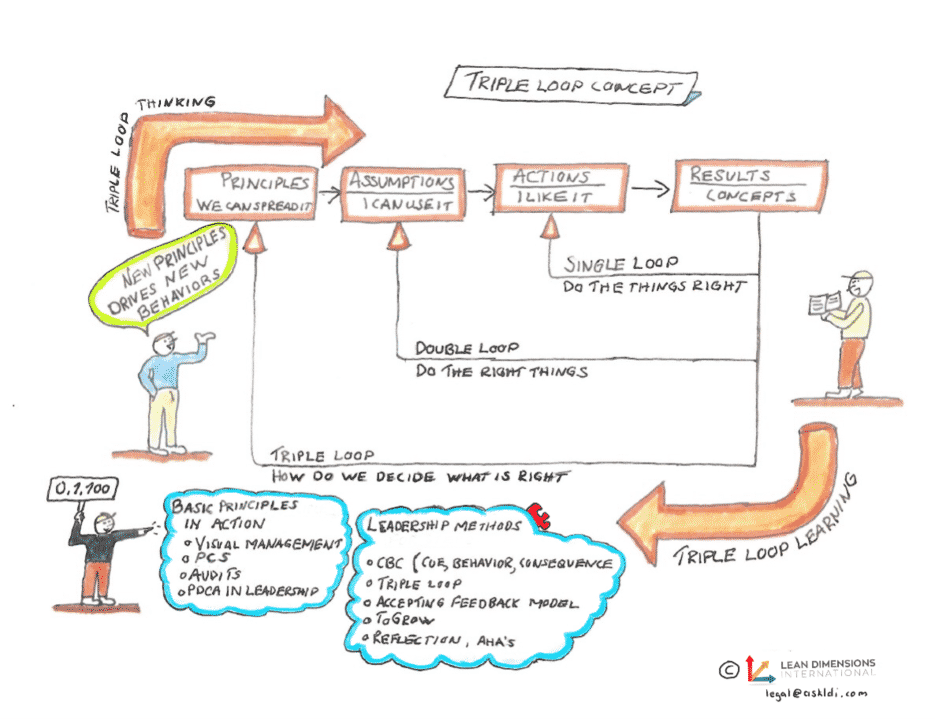 TRIPLE LOOP CONCEPT
TRIPLE LOOP THINKING
PRINCIPLES
WE CAN SPREAD IT
ASSUMPTIONS
I CAN USE IT
ACTIONS
I LIKE IT
RESULTS
CONCEPTS
NEW PRINCIPLES
DRIVES NEW
BEHAVIORS
SINGLE LOOP
DO THE THINGS RIGHT
DOUBLE LOOP
DO THE RIGHT THINGS
TRIPLE LOOP
HOW DO WE DECIDE WHAT IS RIGHT
TRIPLE LOOP LEARNING
0,1,100
BASIC PRINCIPLES
IN ACTION
VISUAL MANAGEMENT
PCS
AUDITS
PDCA IN LEADERSHIP
LEADERSHIP METHODS
CBC (CUE, BEHAVIOR, CONSEQUENCE
TRIPLE LOOP
ACCEPTING FEEDBACK MODEL
TOGROW
REFLECTION, AHA'S
© LEAN DIMENSIONS
INTERNATIONAL
legal@askldi.com